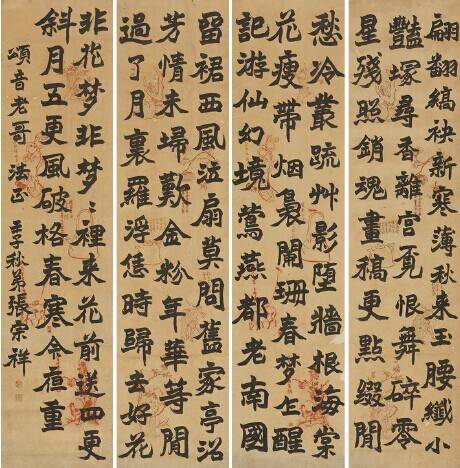 翩翻縞袂新寒薄秋来王腰纖小
豔塚尋香離宮覓恨舞碎零
星殘照銷魂畫稿更點綴閒
愁冷叢疏艸影墮牆根海棠
花瘦帶烟裊闌珊春夢乍醒
記游仙幻境鶯燕都老南國
留裙西風泣扇莫問舊家亭沼
芳情未埽歎金粉年華等閒
過了月裏羅浮恁時歸去好花
非花夢非夢〻裡来花前送四更
斜月五更風破格春寒今亱重
頌音老哥 法正 壬子秋弟張宗祥